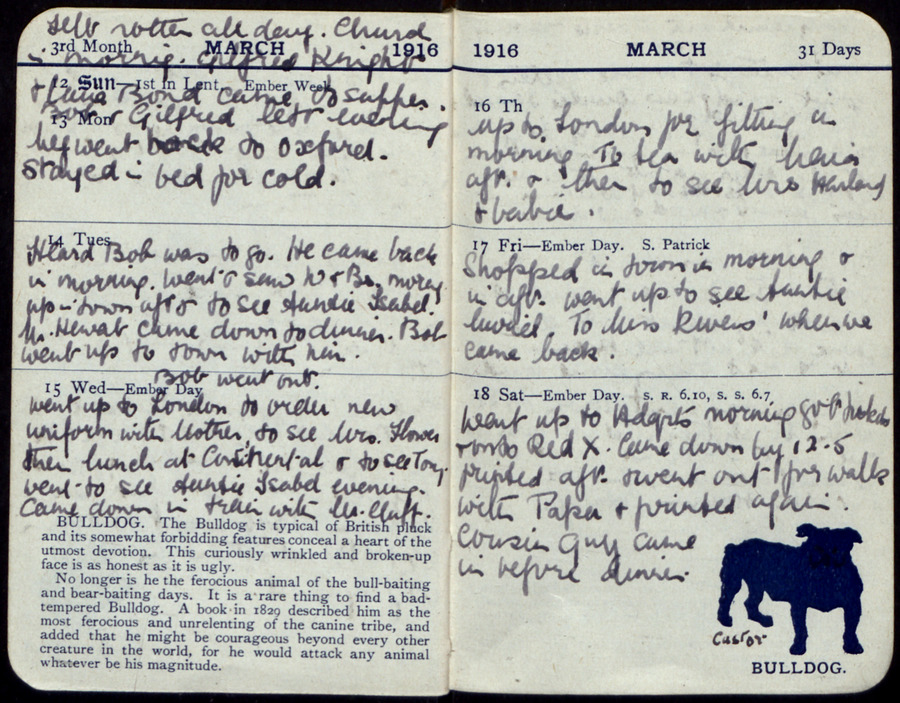 Felt rotten all day. Church
3rd Month MARCH 1916
in morning. Gilfred Knight
12 Sun—1st in Lent. Ember Week
+ Bond came to supper.
13 Mon
Bob & Gilfred left evening
he went back to Oxford.
Stayed in bed for cold.
14 Tues
Heard Bob was to go. He came back
in morning. Went & saw morng.
up in town aft & to see Auntie Isabel.
Mr. Hewat came down to dinner. Bob
went up to town with him.
Bob went out.
15 Wed—Ember Day
Went up to London to order new
uniform with Mother, to see Mrs. Flower
then lunch at Continental & to see Tony.
went to see Auntie Isabel evening.
Came down in train with
BULLDOG. The Bulldog is typical of British pluck
and its somewhat forbidding features conceal a heart of the
utmost devotion. This curiously wrinkled and broken-up
face is as honest as it is ugly.
No longer is he the ferocious animal of the bull-baiting
and bear-baiting days. It is a rare thing to find a bad-
tempered Bulldog. A book in 1829 described him as the
most ferocious and unrelenting of the canine tribe, and
added that he might be courageous beyond every other
creature in the world, for he would attack any animal
whatever be his magnitude.
1916 MARCH 31 Days
16 Th
up to London for fitting in
morning. To tea with
aft. & then to see Mrs
& babie.
17 Fri—Ember Day. S. Patrick
Shopped in town in morning &
in aft. went up to see Auntie
Muriel. To Miss Rivers' when we
came back.
18 Sat—Ember Day. S. R. 6.10, S. S. 6.7
Went up to Hdqrts morning got
& onto Red X. Came down by 12-5
printed aft. & went out for walk
with Papa & printed again.
Cousin Guy came
in before dinner.
Castor
BULLDOG.